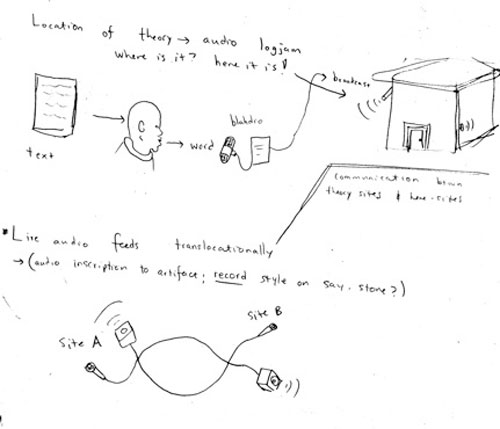 Location of theory → audio logjam
where is it? here it is!
text
→ word
blahdio
broadcast
communication btwn
theory sites & here-sites
* Live audio feeds translocationally
→ (audio inscription to artifact; record style on say, stone?)
Site A
Site B